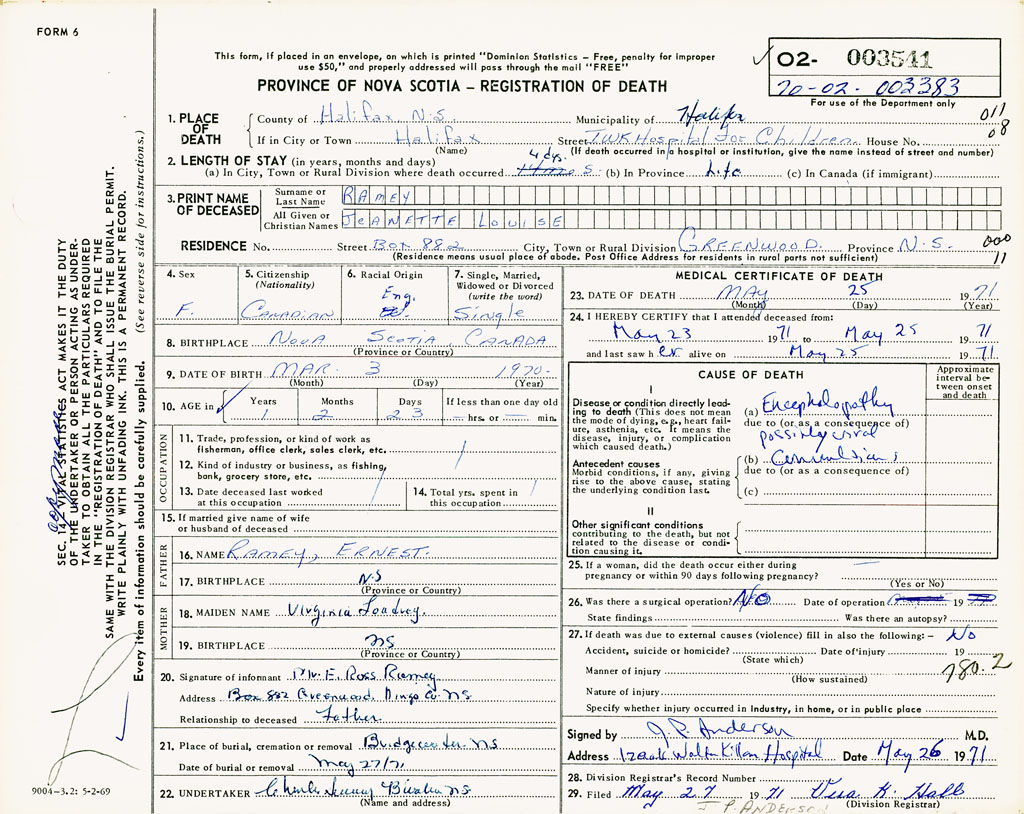 FORM 6
This form, if placed in an envelope, on which is printed "Dominion Statistics – Free, penalty for improper
use $50," and properly addressed will pass through the mail "FREE"
PROVINCE OF NOVA SCOTIA – REGISTRATION OF DEATH
O2- 003541
70-02-003383
For use of the Department only
011
08
1. PLACE OF DEATH
County of Halifax N.S. Municipality of Halifax
If in City or Town Halifax Street IWK Hospital For Children House No.
(Name) (If death occurred in a hospital or institution, give the name instead of street and number)
2. LENGTH OF STAY (in years, months and days)
(a) In City, Town or Rural Division where death occurred 4 dys. (b) In Province Life (c) In Canada (if immigrant)
3. PRINT NAME OF DECEASED
Surname or Last Name RAMEY
All Given or Christian Names JEANETTE LOUISE
RESIDENCE No. Street Box 882 City, Town or Rural Division GREENWOOD Province N.S.
(Residence means usual place of abode. Post Office Address for residents in rural parts not sufficient)
000
11
4. Sex F.
5. Citizenship (Nationality) Canadian
6. Racial Origin Eng.
7. Single, Married, Widowed or Divorced (write the word) Single
8. BIRTHPLACE Nova Scotia, Canada
(Province or Country)
9. DATE OF BIRTH MAR. 3 1970
(Month) (Day) (Year)
10. AGE in Years Months Days If less than one day old
1 2 23 — hrs. or — min.
OCCUPATION
11. Trade, profession, or kind of work as fisherman, office clerk, sales clerk, etc.
12. Kind of industry or business, as fishing, bank, grocery store, etc.
13. Date deceased last worked at this occupation
14. Total yrs. spent in this occupation
15. If married give name of wife or husband of deceased
FATHER
16. NAME RAMEY, ERNEST.
17. BIRTHPLACE N.S
(Province or Country)
MOTHER
18. MAIDEN NAME Virginia
19. BIRTHPLACE NS
(Province or Country)
20. Signature of informant Mr. E. Ross Ramey
Address Box 882 Greenwood, Kings Co. NS
Relationship to deceased Father
21. Place of burial, cremation or removal Bridgewater NS
Date of burial or removal May 27/71
22. UNDERTAKER Charles NS
(Name and address)
MEDICAL CERTIFICATE OF DEATH
23. DATE OF DEATH MAY 25 1971
(Month) (Day) (Year)
24. I HEREBY CERTIFY that I attended deceased from:
May 23 1971 to May 25 1971
and last saw her alive on May 25 1971
CAUSE OF DEATH
Approximate interval between onset and death
I
Disease or condition directly leading to death (This does not mean the mode of dying, e.g., heart failure, asthenia, etc. It means the disease, injury, or complication which caused death.)
(a) Encephalopathy
due to (or as a consequence of)
possibly viral
Antecedent causes
Morbid conditions, if any, giving rise to the above cause, stating the underlying condition last.
(b) Convulsions
due to (or as a consequence of)
(c)
II
Other significant conditions contributing to the death, but not related to the disease or condition causing it.
25. If a woman, did the death occur either during pregnancy or within 90 days following pregnancy?
(Yes or No)
26. Was there a surgical operation? No Date of operation 19
State findings Was there an autopsy?
27. If death was due to external causes (violence) fill in also the following: – No
Accident, suicide or homicide? Date of injury 19
(State which)
780.2
Manner of injury
(How sustained)
Nature of injury
Specify whether injury occurred in industry, in home, or in public place
Signed by J.P. Anderson M.D.
Address Izaak Walton Killam Hospital Date May 26 1971
28. Division Registrar's Record Number
29. Filed May 27 1971 K. Hall
(Division Registrar)
J P. ANDERSON
SEC. 14, VITAL STATISTICS ACT MAKES IT THE DUTY
OF THE UNDERTAKER OR PERSON ACTING AS UNDER-
TAKER TO OBTAIN ALL THE PARTICULARS REQUIRED
IN THE "REGISTRATION OF DEATH" AND TO FILE THE
SAME WITH THE DIVISION REGISTRAR WHO SHALL ISSUE THE BURIAL PERMIT.
WRITE PLAINLY WITH UNFADING INK. THIS IS A PERMANENT RECORD.
Every item of information should be carefully supplied. (See reverse side for instructions.)
9004-3.2: 5-2-69